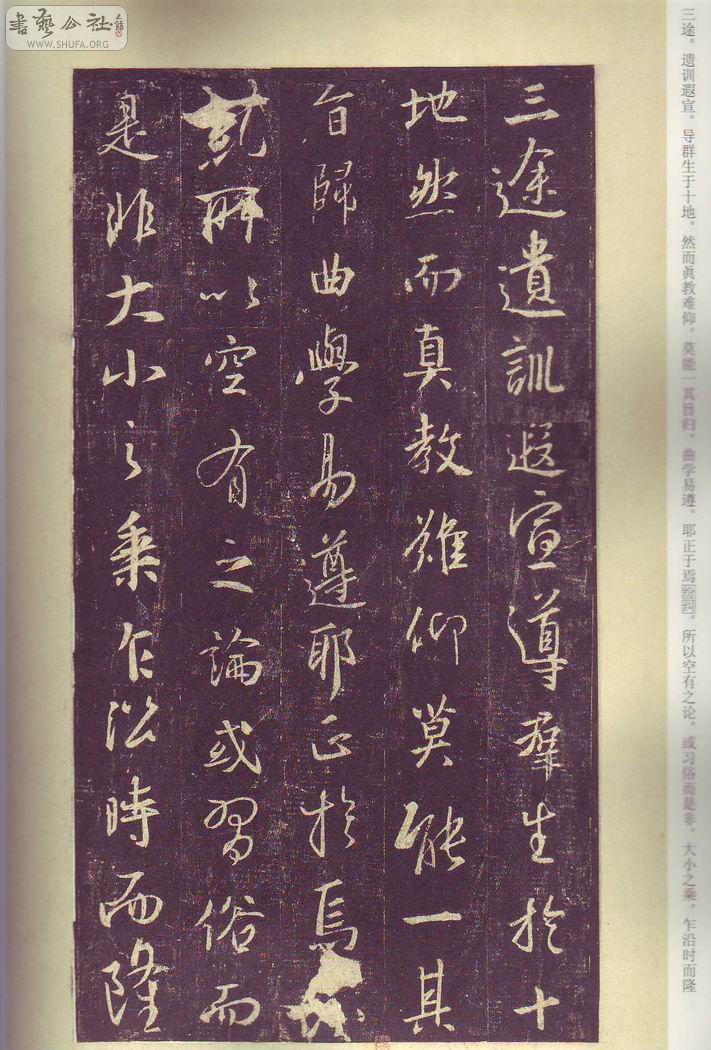 書藝公社
WWW.SHUFA.ORG
三途。遗训遐宣。导群生于十地。然而真教难仰。莫能一其旨归。曲学易遵。耶正于焉纷纠。所以空有之论。或习俗而是非。大小之乘。乍沿时而隆
三途遺訓遐宣導羣生於十
地然而真教難仰莫能一其
旨歸曲學易遵耶正於焉
所以空有之論或習俗而
是非大小之乘乍沿時而隆